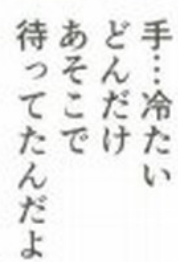 手…冷たい
どんだけ
あそこで
待ってたんだよ